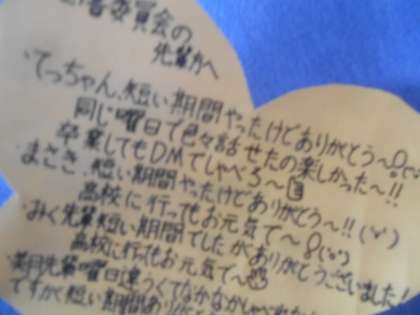 図書委員会の
先輩方へ
・てっちゃん、短い期間やったけどありがとう〜!
同じ曜日で色々話せたの楽しかった〜!!
卒業してもDMでしゃべろ〜
・まさき、短い期間やったけどありがとう〜!!(˙v˙)
高校に行ってもお元気で〜!(˙v˙)
・みく先輩短い期間でしたがありがとうございました!
高校に行ってもお元気で〜
先輩曜日違うくてなかなかしゃべれ
ですが短い期間あり